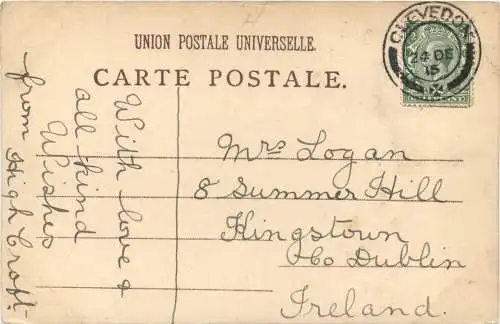 UNION POSTALE UNIVERSELLE.
CARTE POSTALE.
CLEVEDON
24 DE
15
With love &
all kind
Wishes
from High Croft.
Mrs Logan
8 Summer Hill
Kingstown
Co Dublin
Ireland.